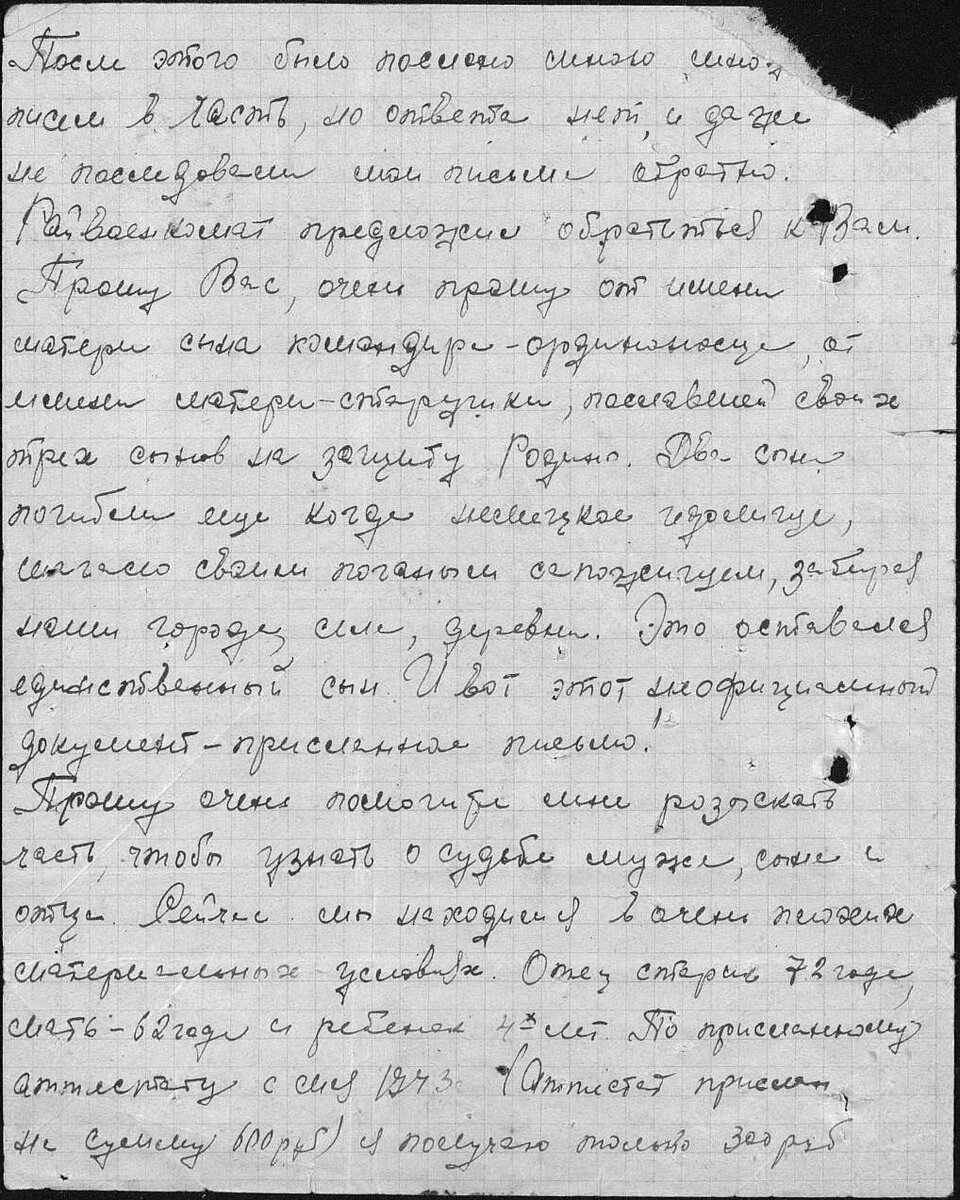 После этого было послано мною много
писем в часть, но ответа нет, и даже
не последовали мои письма обратно.
Райвоенкомат предложил обратиться к Вам.
Прошу Вас, очень прошу от имени
матери сына командира-орденоносца, от
имени матери-старушки, пославшей своих
трех сынов на защиту Родины. Два сына
погибли еще когда немецкое идолище,
шагало своим поганым сапожищем, забирая
наши города, села, деревни. Это оставался
единственный сын. И вот этот неофициальный
документ-присланное письмо.
Прошу очень помогите мне розыскать
часть, чтобы узнать о судьбе мужа, сына и
отца. Сейчас мы находимся в очень плохих
материальных условиях. Отец старик 72 года,
мать-62 года и ребенок 4х лет. По присланному
аттестату с мая 1943 (Аттестат прислан
на сумму 600 руб) я получаю только 300 руб